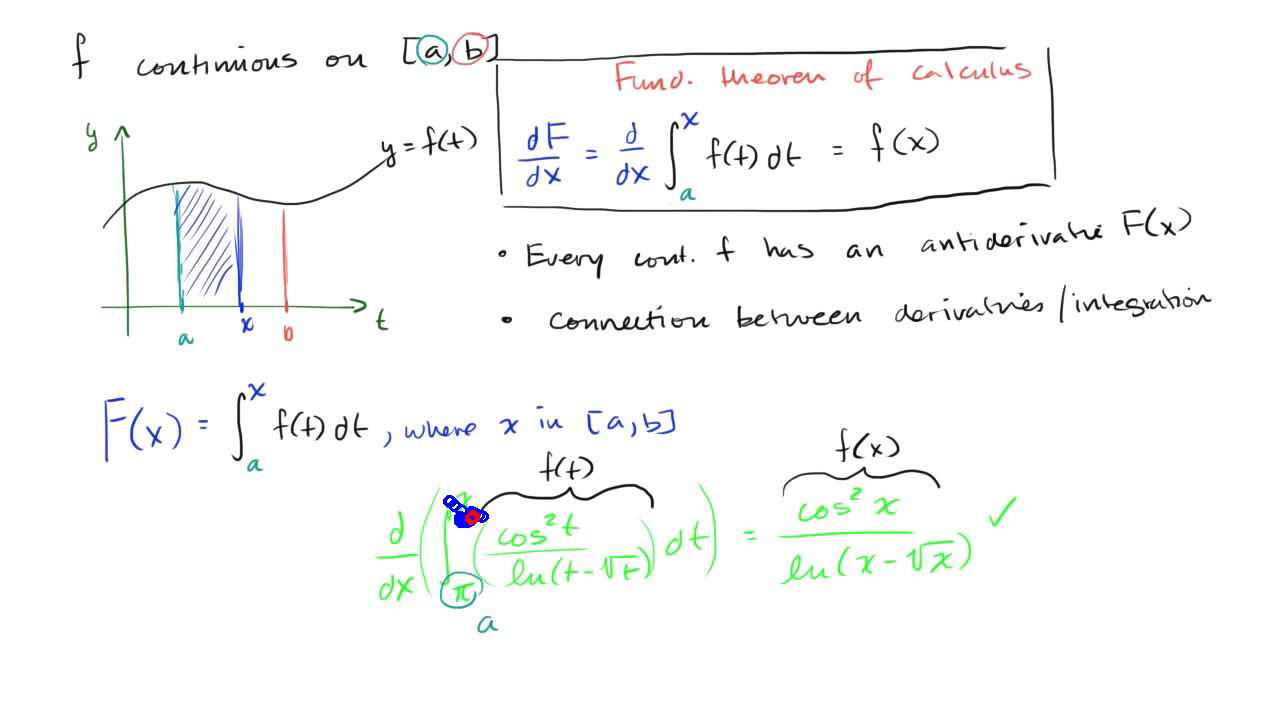 f continuous on [a, b]
Fund. theorem of calculus
dF/dx = d/dx ∫_a^x f(t) dt = f(x)
y
y = f(t)
a x b t
• Every cont. f has an antiderivative F(x)
• connection between derivatives / integration
F(x) = ∫_a^x f(t) dt , where x in [a, b]
f(t) f(x)
d/dx ( ∫_π^x ( cos²t / ln(t-√t) ) dt ) = cos²x / ln(x-√x) ✓
a